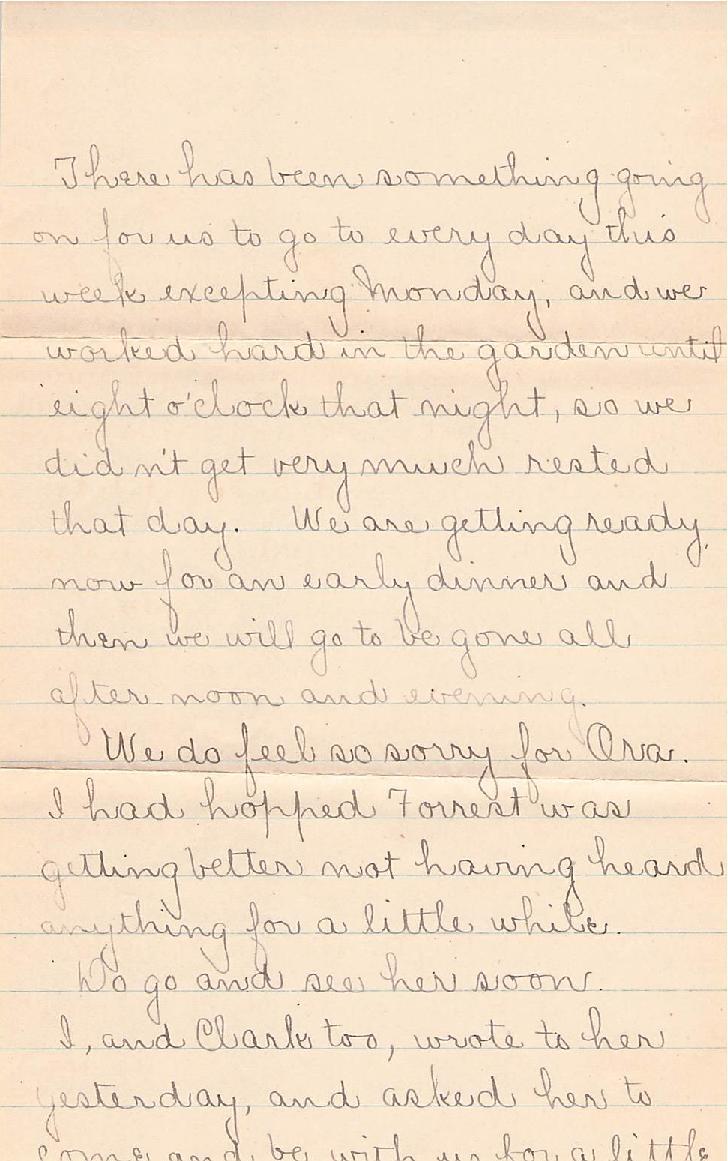 There has been something going
on for us to go to every day this
week excepting Monday, and we
worked hard in the garden until
eight o'clock that night, so we
did n't get very much rested
that day. We are getting ready
now for an early dinner and
then we will go to be gone all
after noon and evening.
We do feel so sorry for Ora.
I had hopped Forrest was
getting better not having heard
anything for a little while.
Do go and see her soon.
I, and Clark too, wrote to her
yesterday, and asked her to
come and be with us for a little